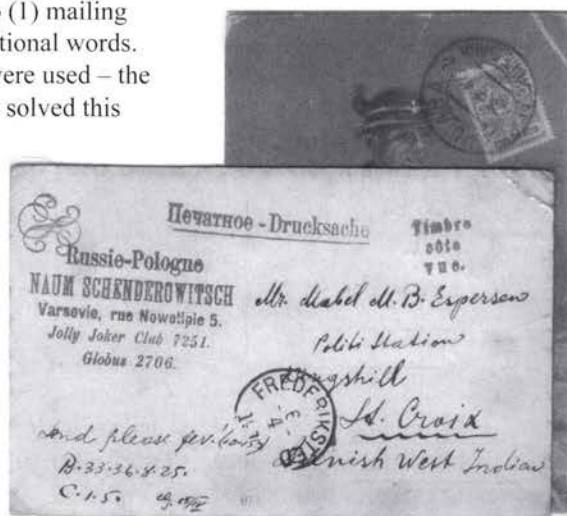 (1) mailing
tional words.
vere used – the
solved this
Печатное - Drucksache
Timbre
côte
vue.
Russie-Pologne
NAUM SCHENDEROWITSCH
Varsovie, rue Nowolipie 5.
Jolly Joker Club 7251.
Globus 2706.
Mr. Mabel M. B. Espersen
Politi Station
Kingshill
St. Croix
Danish West Indian
FREDERIKSTED
and please
B. 33-36.
C. 1.5.